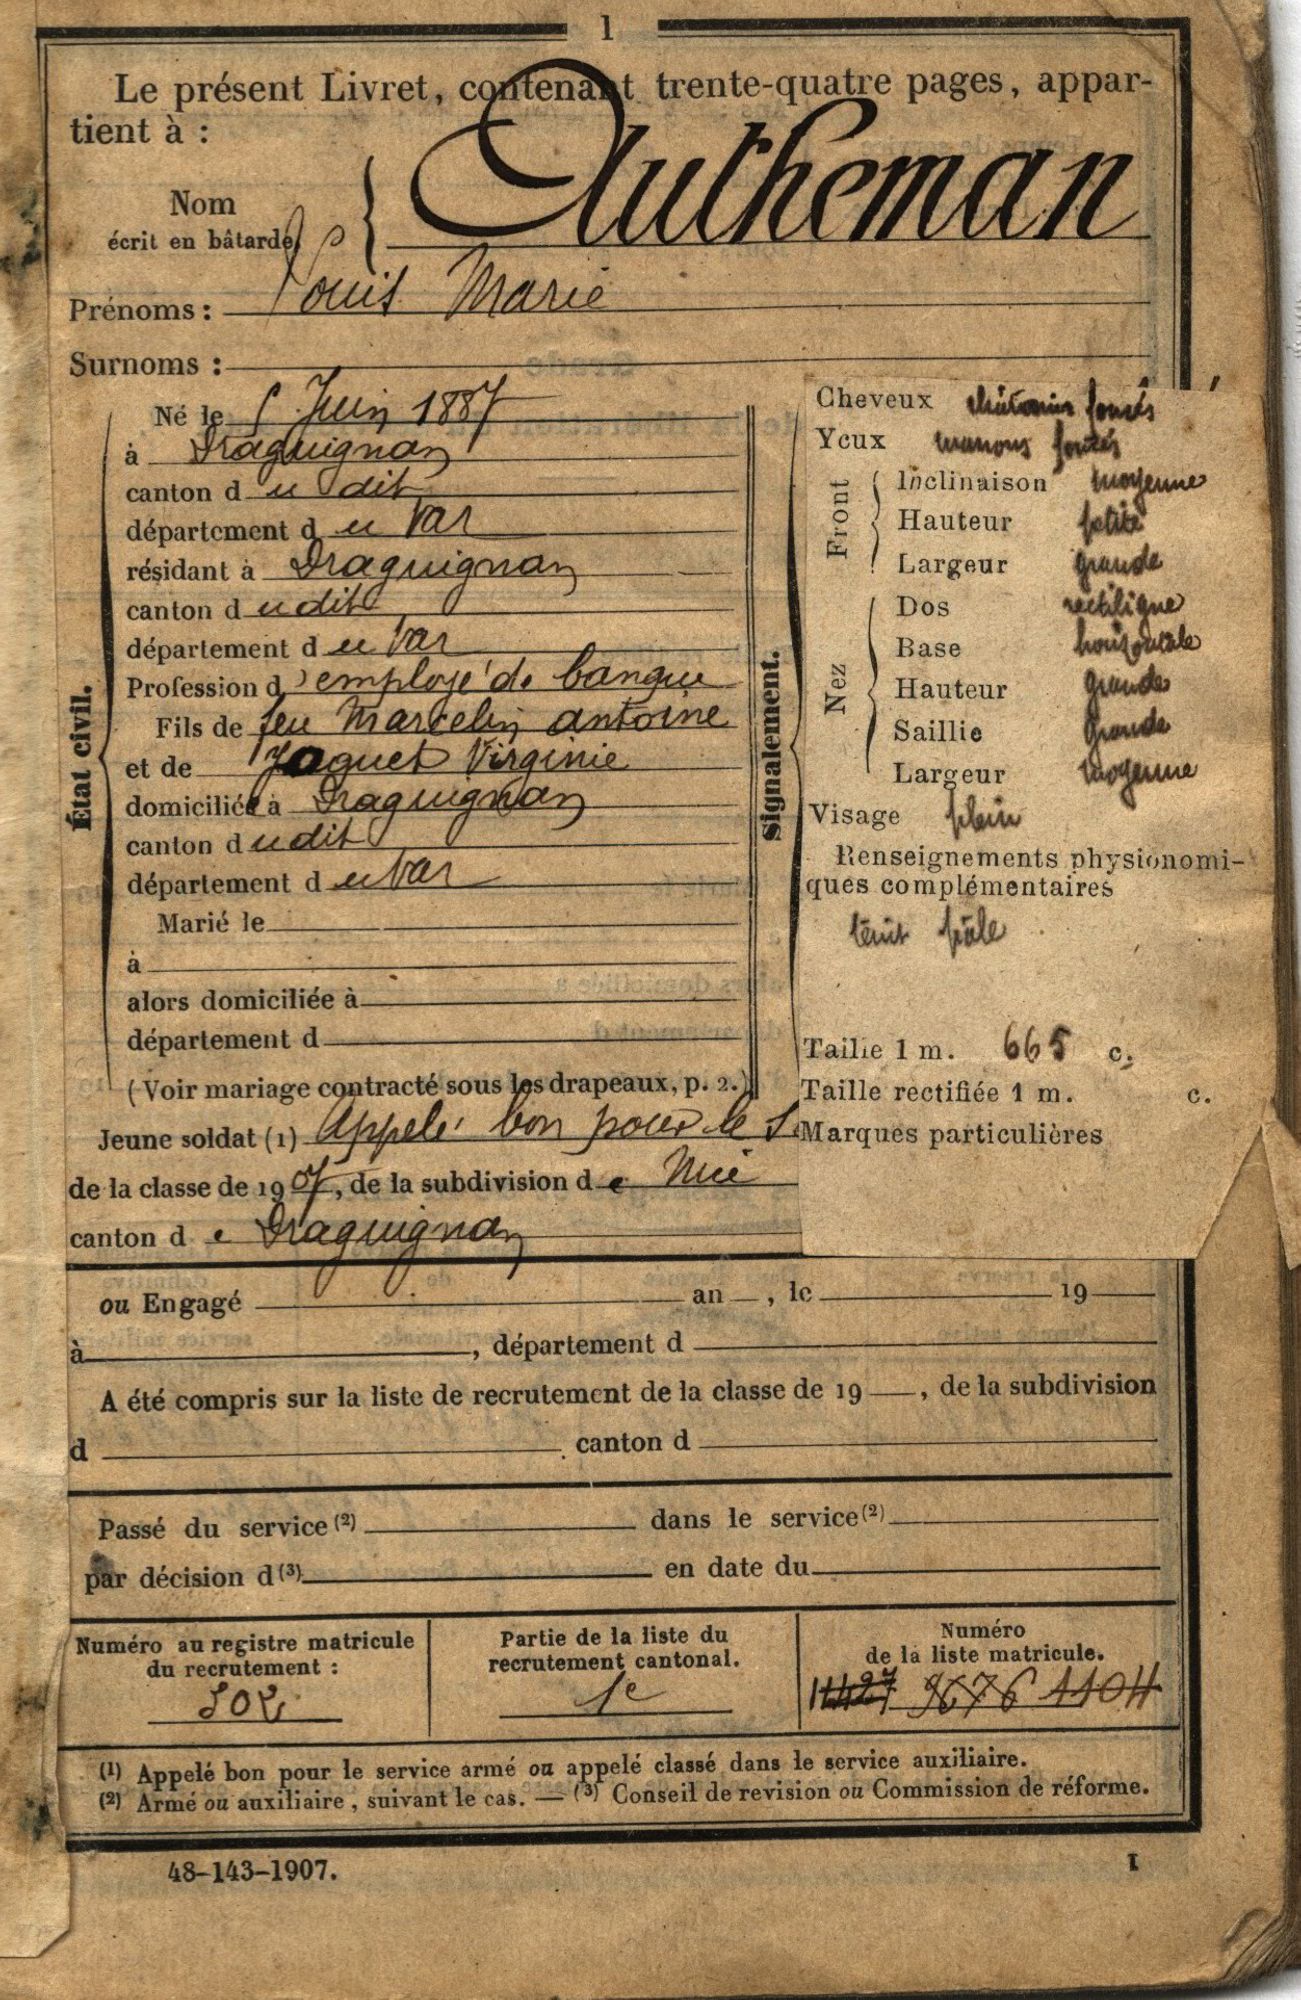 1
Le présent Livret, contenant trente-quatre pages, appar-
tient à :
Nom
écrit en bâtarde,
Autheman
Prénoms : Louis Marie
Surnoms :
État civil.
Né le 5 Juin 1887
à Draguignan
canton d u dit
département d u Var
résidant à Draguignan
canton d udit
département d u Var
Profession d'employé de banque
Fils de feu Marcelin antoine
et de Jaguet Virginie
domiciliée à Draguignan
canton d udit
département d u Var
Marié le
à
alors domiciliée à
département d
(Voir mariage contracté sous les drapeaux, p. 2.)
Signalement.
Cheveux châtains foncés
Yeux marrons foncés
Front
Inclinaison moyenne
Hauteur petite
Largeur grande
Nez
Dos rectiligne
Base horizontale
Hauteur grande
Saillie grande
Largeur moyenne
Visage plein
Renseignements physionomi-
ques complémentaires
teint pâle
Taille 1 m. 665 c.
Taille rectifiée 1 m. c.
Marques particulières
Jeune soldat (1) Appelé bon pour le S
de la classe de 1907, de la subdivision d e Nice
canton d e Draguignan
ou Engagé an , le 19
à , département d
A été compris sur la liste de recrutement de la classe de 19 , de la subdivision
d canton d
Passé du service (2) dans le service (2)
par décision d (3) en date du
Numéro au registre matricule
du recrutement :
502
Partie de la liste du
recrutement cantonal.
1e
Numéro
de la liste matricule.
9676 1104
(1) Appelé bon pour le service armé ou appelé classé dans le service auxiliaire.
(2) Armé ou auxiliaire, suivant le cas. — (3) Conseil de revision ou Commission de réforme.
48-143-1907.
I